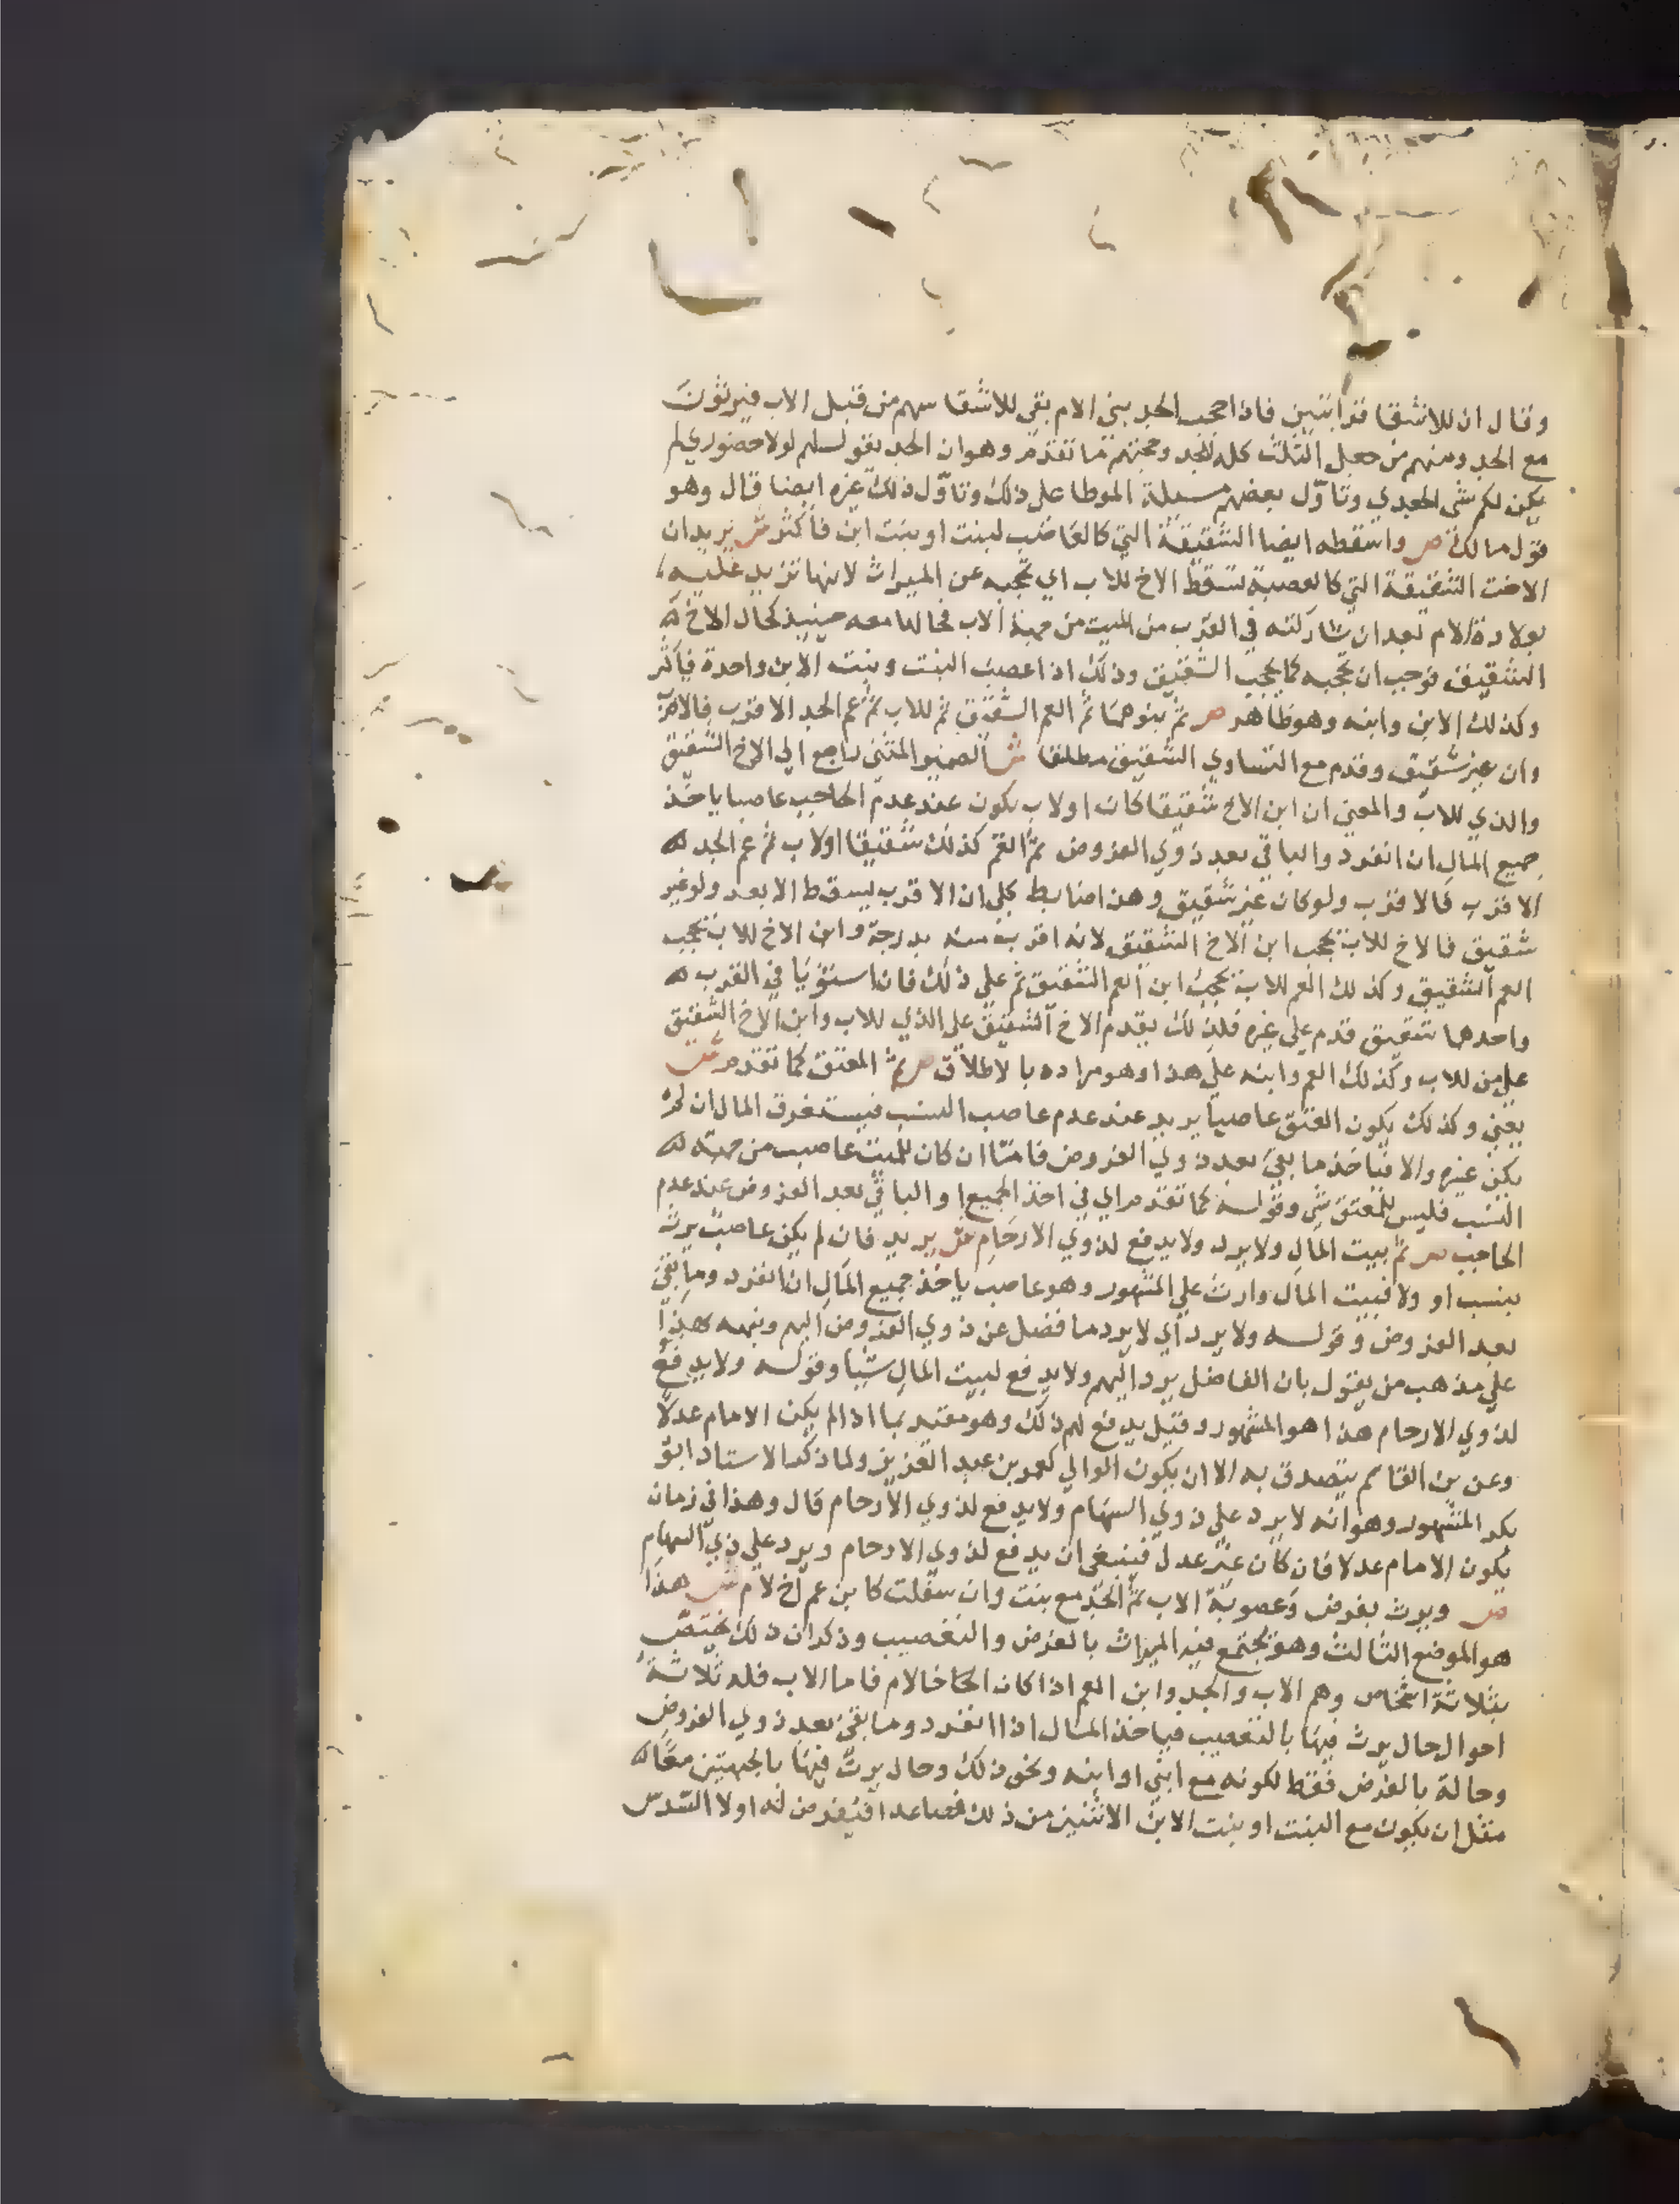 وقال ان للاشقا قرابتين فاذا حجب الجد بني الام بقي للاشقا سهم من قبل الاب فيرثون
مع الجد ومنهم من جعل الثلث كله للجد وحجتهم ما تقدم وهو ان الجد يقول لهم لولا حضوري لم
يكن لكم شي الجدي وتاول بعضهم مسيلة الموطا على ذلك وتاول ذلك غيره ايضا قال وهو
قول مالك ص واسقطه ايضا الشقيقة التي كالعاصب لبنت او بنت ابن فاكثر ش يريد ان
الاخت الشقيقة التي كالعصبة تسقط الاخ للاب اي تحجبه عن الميراث لانها تزيد عليه
بولادة الام بعد ان شاركته في القرب من الميت من جهة الاب فحالها معه حينيذ كحال الاخ
الشقيق فوجب ان تحجبه كما يحجب الشقيق وذلك اذا عصبت البنت وبنت الابن واحدة فاكثر
وكذلك الابن وابنه وهو ظاهر ص ثم بنوهما ثم العم الشقيق ثم للاب ثم عم الجد الاقرب فالاقرب
وان غير شقيق وقدم مع التساوي الشقيق مطلقا ش الضمير المثنى راجع الي الاخ الشقيق
والذي للاب والمعني ان ابن الاخ شقيقا كان او لاب يكون عند عدم الحاجب عاصبا ياخذ
جميع المال ان انفرد والباقي بعد ذوي الفروض ثم العم كذلك شقيقا او لاب ثم عم الجد
الاقرب فالاقرب ولو كان غير شقيق وهذا ضابط كلي ان الاقرب يسقط الابعد ولو غير
شقيق فالاخ للاب يحجب ابن الاخ الشقيق لانه اقرب منه بدرجة وابن الاخ للاب يحجب
العم الشقيق وكذلك العم للاب يحجب ابن العم الشقيق ثم علي ذلك فان استويا في القرب
واحدهما شقيق قدم علي غيره فلذلك يقدم الاخ الشقيق علي الذي للاب وابن الاخ الشقيق
علي من للاب وكذلك العم وابنه علي هذا وهو مراده بالاطلاق ص ثم المعتق كما تقدم ش
يعني وكذلك يكون المعتق عاصبا يريد عند عدم عاصب النسب فيستغرق المال ان لم
يكن غيره والا فياخذ ما بقي بعد ذوي الفروض فاما ان كان للميت عاصب من جهة
النسب فليس للمعتق شي وقوله كما تقدم اي في اخذ الجميع او الباقي بعد الفروض عند عدم
الحاجب ص ثم بيت المال ولا يرد ولا يدفع لذوي الارحام ش يريد فان لم يكن عاصب يرث
بنسب او ولا فبيت المال وارث علي المشهور وهو عاصب ياخذ جميع المال ان انفرد وما بقي
بعد الفروض وقوله ولا يرد اي لا يرد ما فضل عن ذوي الفروض اليهم ونبه بهذا
علي مذهب من يقول بان الفاضل يرد اليهم ولا يدفع لبيت المال شيا وقوله ولا يدفع
لذوي الارحام هذا هو المشهور وقيل يدفع لهم ذلك وهو مقيد بما اذا لم يكن الامام عدلا
وعن بن القاسم يتصدق به الا ان يكون الوالي كعمر بن عبد العزيز ولما ذكر الاستاد ابو
بكر المشهور وهو انه لا يرد علي ذوي السهام ولا يدفع لذوي الارحام قال وهذا في زمان
يكون الامام عدلا فان كان غير عدل فينبغي ان يدفع لذوي الارحام ويرد علي ذي السهام
ص ويرث بفرض وعصوبة الاب ثم الجد مع بنت وان سفلت كابن عم اخ لام ش هذا
هو الموضع الثالث وهو يجتمع فيه الميراث بالفرض والتعصيب وذكر ان ذلك يختص
بثلاثة اشخاص وهم الاب والجد وابن العم اذا كان اخا لام فاما الاب فله ثلاثة
احوال حال يرث فيها بالتعصيب فياخذ المال اذا انفرد وما بقي بعد ذوي الفروض
وحالة بالفرض فقط لكونه مع ابن او ابنه ونحو ذلك وحال يرث فيها بالجهتين معا
مثل ان يكون مع البنت او بنت الابن الاثنين من ذلك فصاعدا فيفرض له اولا السدس